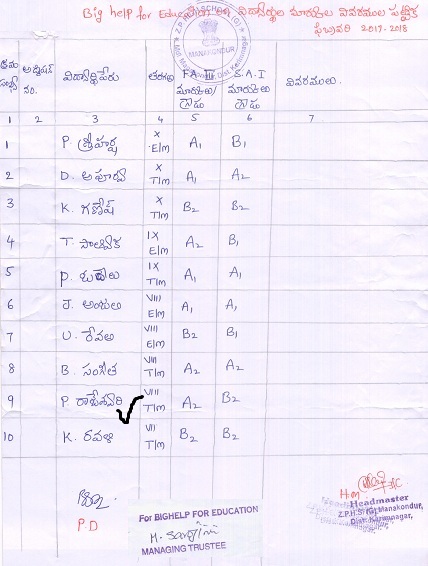 Big help for Education వారి విద్యార్థుల మార్కుల వివరముల పట్టిక
ఫిబ్రవరి 2017-2018
Z.P.H. SCHOOL (G)
MANAKONDUR
క్రమ సంఖ్య అడ్మిషన్ నం. విద్యార్థి పేరు తరగతి FA III మార్కులు/గ్రేడు S.A.I మార్కులు గ్రేడు వివరములు.
1 2 3 4 5 6 7
1 P. శ్రీహర్ష X E/m A1 B1
2 D. అపూర్వ X T/m A1 A2
3 K. గణేష్ X T/m B2 B2
4 T. సాత్విక IX E/m A2 B1
5 P. IX T/m A1 A1
6 J. అంజలి VIII E/m A1 A1
7 U. రేవతి VIII E/m B2 B1
8 B. సంగీత VIII T/m A2 A2
9 P. రాజేశ్వరి VIII T/m A2 B2
10 K. రవళి VII T/m B2 B2
P.D
For BIGHELP FOR EDUCATION
MANAGING TRUSTEE
H.m
Headmaster
Z.P.H.S (G) Manakondur,
Dist: Karimnagar,